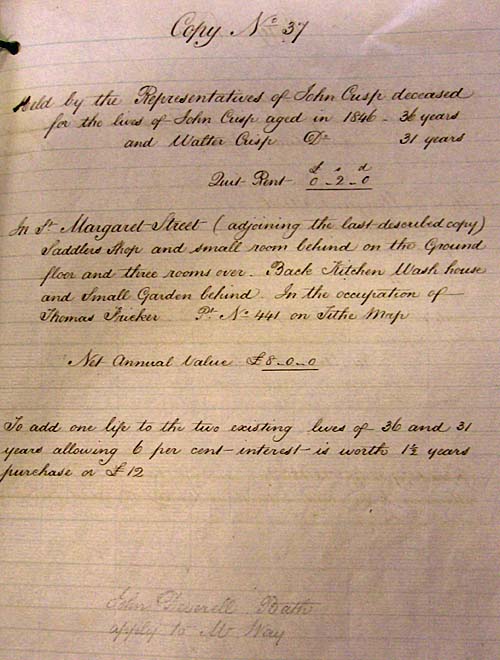 Copy No 37
Held by the Representatives of John Crisp deceased
for the lives of John Crisp aged in 1846 - 36 years
and Walter Crisp Do 31 years
£ s d
Quit Rent 0 - 2 - 0
In St Margaret Street (adjoining the last described copy)
Saddlers Shop and small room behind on the Ground
floor and three rooms over. Back Kitchen Wash house
and Small Garden behind. In the occupation of
Thomas Tucker Pt No 441 on Tithe Map
Net Annual Value £8 - 0 - 0
To add one life to the two existing lives of 36 and 31
years allowing 6 per cent interest is worth 1½ years
purchase or £12
John Deverell Bath
apply to Mr Way